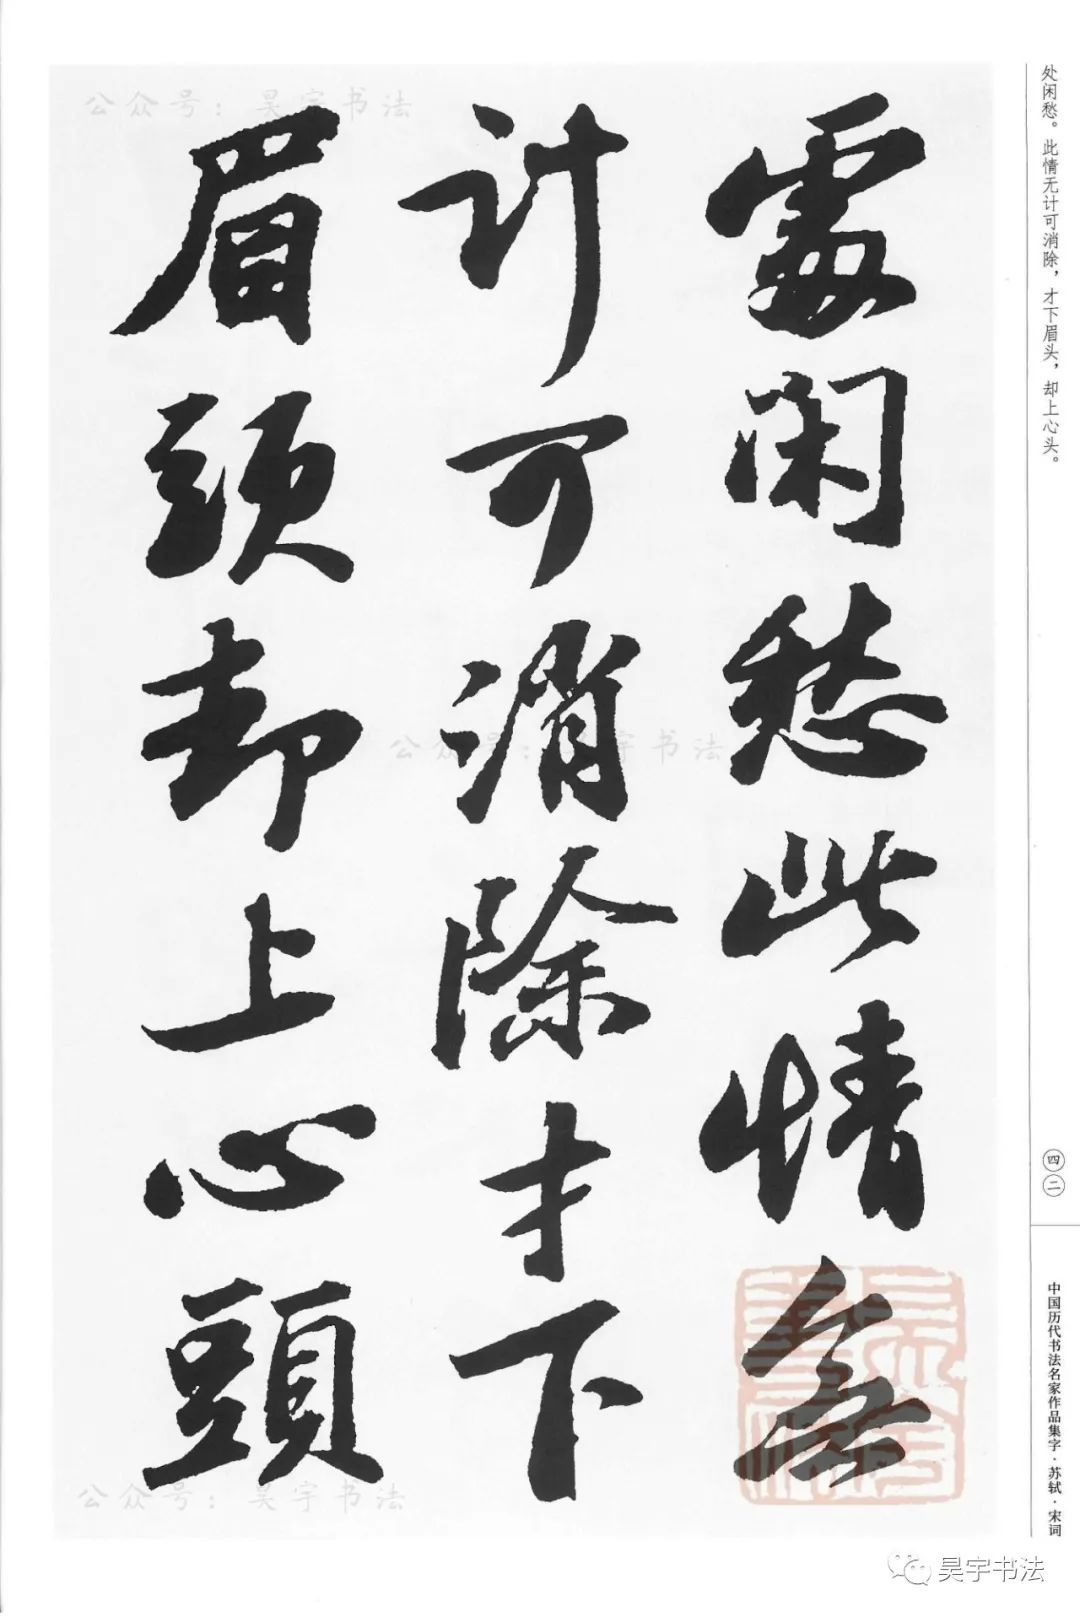 處闲愁此情無
计可消除才下
眉頭却上心頭
处闲愁。此情无计可消除，才下眉头，却上心头。
四二
中国历代书法名家作品集字·苏轼·宋词
公众号：昊宇书法
公众号：昊宇书法
公众号：昊宇书法
昊宇书法